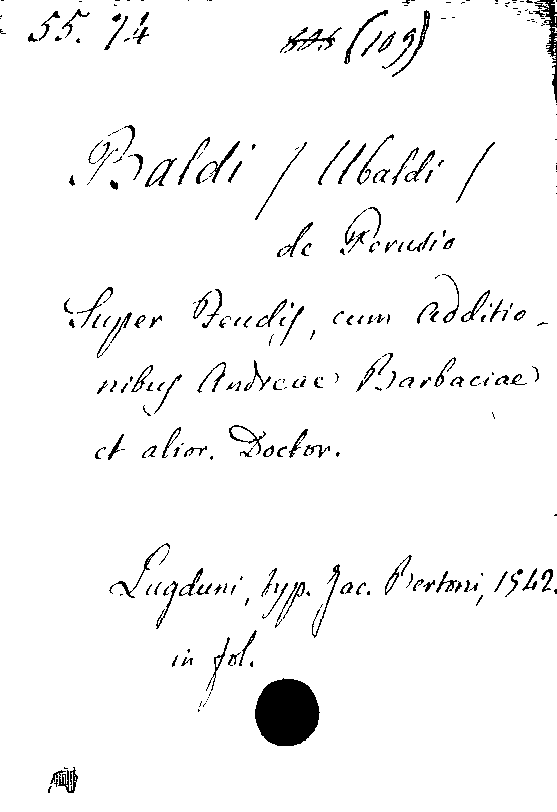 55. 74 (109)
Baldi / Ubaldi /
de Perusio
Super Feudis, cum additio-
nibus Andreae Barbaciae
et alior. Doctor.
Lugduni, typ. Jac. Bertoni, 1542.
in fol.